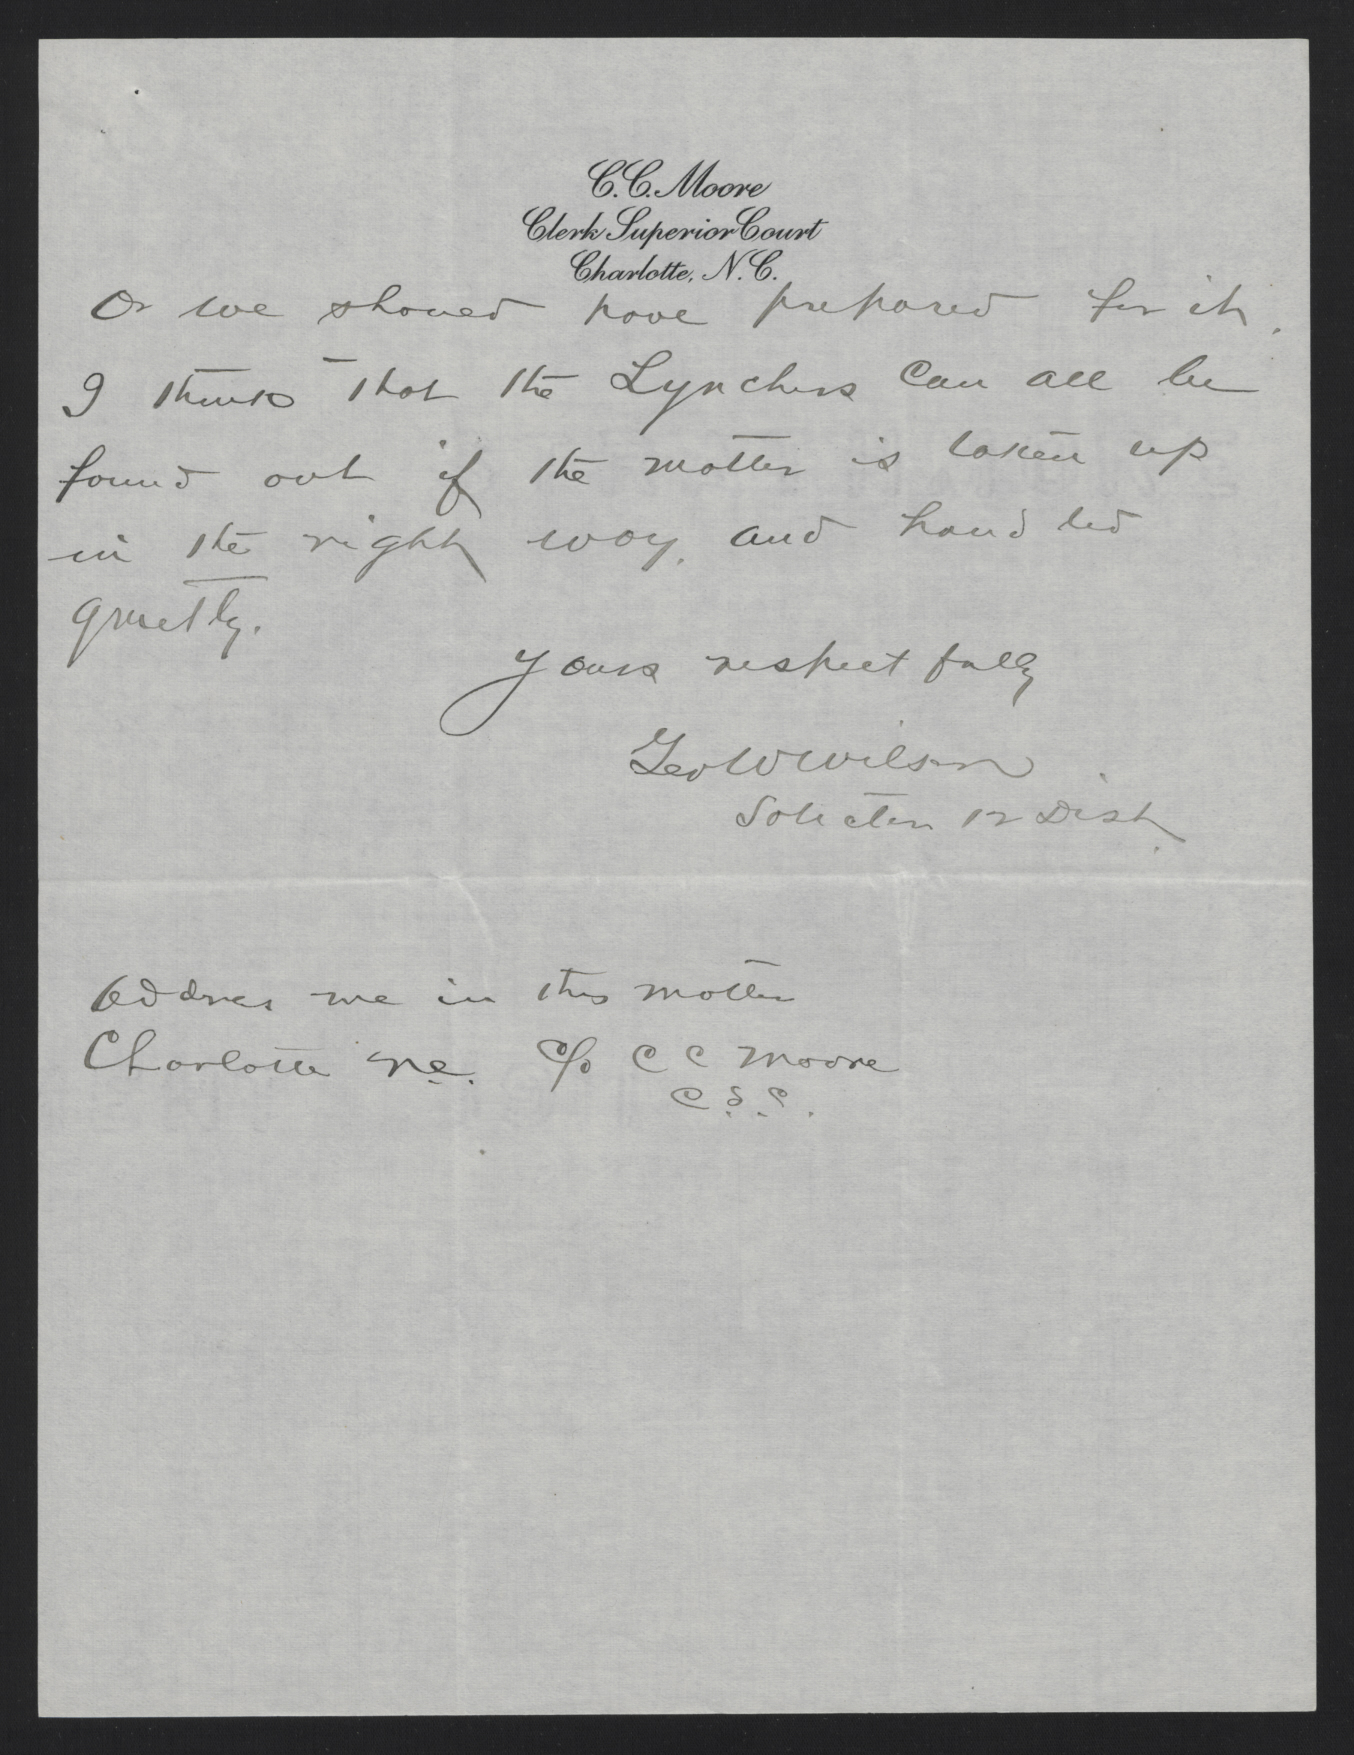 C.C. Moore
Clerk Superior Court
Charlotte, N.C.
Or we should have prepared for it.
I think that the Lynchers can all be
found out if the matter is taken up
in the right way, and handled
quietly.
Yours respectfully
Geo W Wilson
Solicitor 12 Dist.
Address me in this matter
Charlotte N.C. c/o C C Moore
C.S.C.